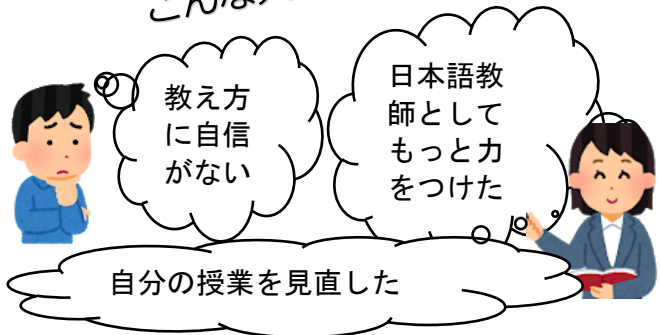 教え方
に自信
がない
日本語教
師として
もっと力
をつけた
自分の授業を見直した